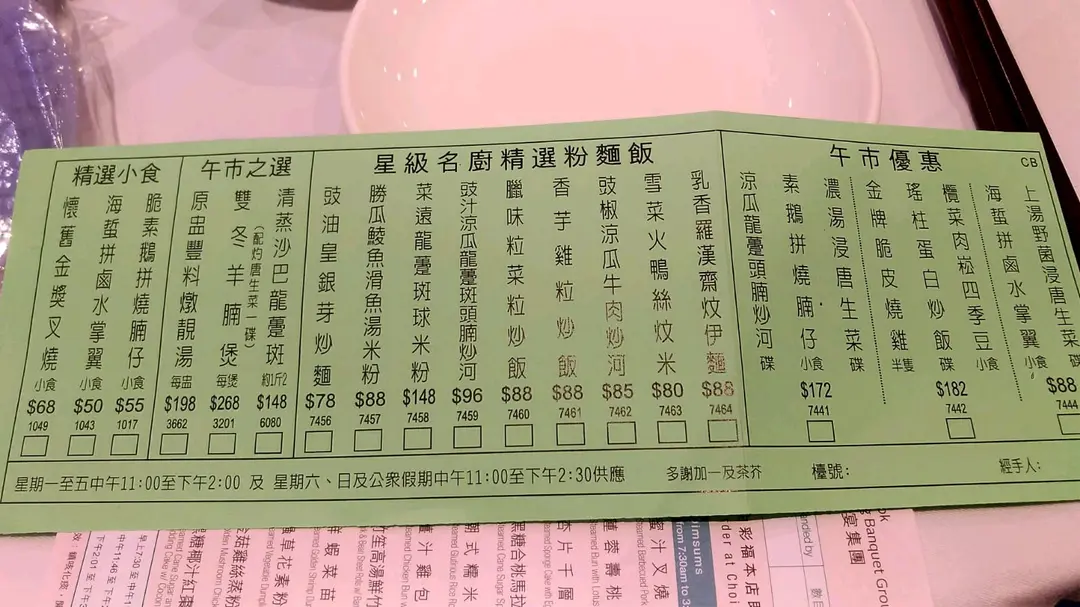 精選小食
懷舊金獎叉燒 小食
$68
1049
海蜇拼鹵水掌翼 小食
$50
1043
脆素鵝拼燒腩仔 小食
$55
1017
午市之選
原盅豐料燉靚湯 每盅
$198
3662
雙冬羊腩煲 每煲
(配灼唐生菜一碟)
$268
3201
清蒸沙巴龍躉斑 約1斤2
$148
6080
星級名廚精選粉麵飯
豉油皇銀芽炒麵
$78
7456
勝瓜鯪魚滑魚湯米粉
$88
7457
菜遠龍躉斑球米粉
$148
7458
豉汁涼瓜龍躉斑頭腩炒河
$96
7459
臘味粒菜粒炒飯
$88
7460
香芋雞粒炒飯
$88
7461
豉椒涼瓜牛肉炒河
$85
7462
雪菜火鴨絲炆米
$80
7463
乳香羅漢齋炆伊麵
$88
7464
午市優惠
CB
涼瓜龍躉頭腩炒河 碟
素鵝拼燒腩仔 小食
濃湯浸唐生菜 碟
$172
7441
金牌脆皮燒雞 半隻
瑤柱蛋白炒飯 碟
欖菜肉崧四季豆 小食
$182
7442
海蜇拼鹵水掌翼 小食
上湯野菌浸唐生菜 碟
$88
7444
星期一至五中午11:00至下午2:00 及 星期六、日及公眾假期中午11:00至下午2:30供應
多謝加一及茶芥
檯號:
經手人:
早上7:30至
中午11:46至
下午2:01 至
鮮蝦菜苗
竹笙高湯鮮竹
汁雞包
潮式糯米
黑糖合桃馬拉
杏片千層
蓮蓉壽桃
蜜汁叉燒
imsums
from 7:30am to 3
彩福本店
der at Choi
anded by
宴集團
Banquet Grou